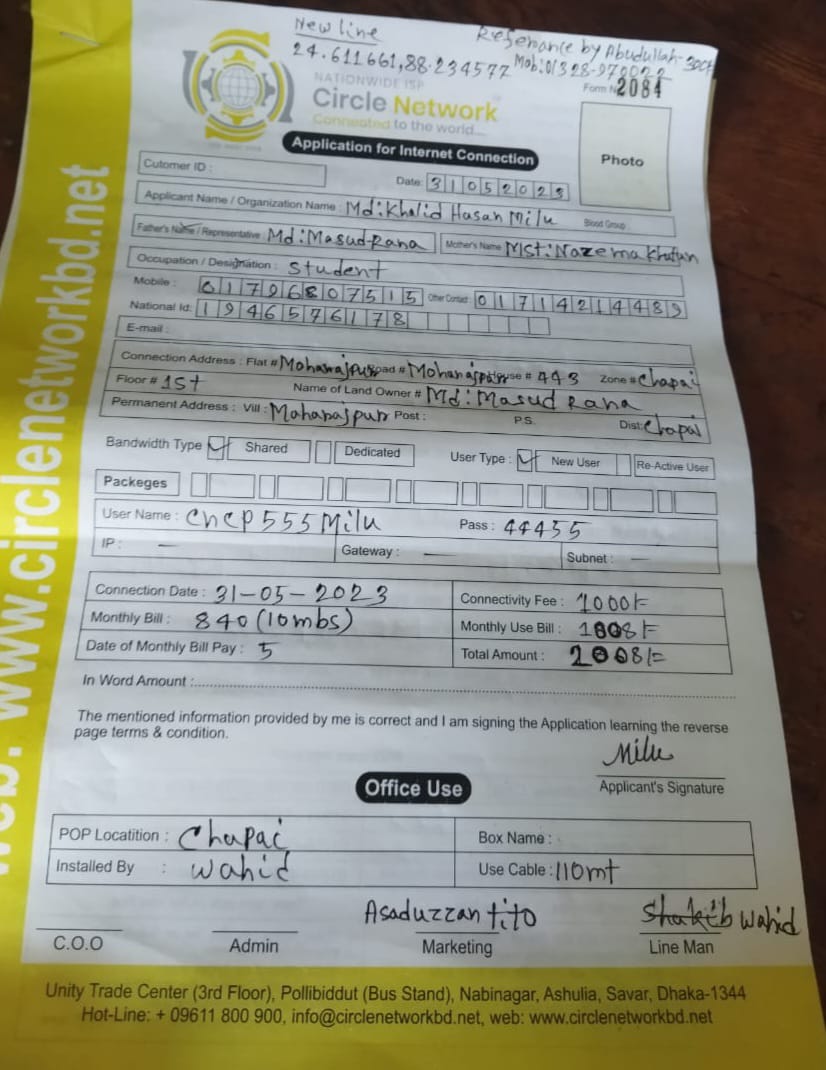 New line
Reference by Abudullah-
24.611661,88.234572 Mob:01328-970022
NATIONWIDE ISP
Circle Network
Connected to the world....
Form N 2084
Application for Internet Connection
Photo
Cutomer ID :
Date: 31052023
Applicant Name / Organization Name : Md:Khalid Hasan Milu Blood Group
Father's Name / Representative : Md:Masud Rana Mother's Name Mst:Nazema Khatun
Occupation / Designation : Student
Mobile : 01796807515 Other Contact 01714214489
National Id: 1946576178
E-mail :
Connection Address : Flat # Moharajpur Road # Moharajpur House # 443 Zone # Chapai
Floor # 1st Name of Land Owner # Md:Masud Rana
Permanent Address : Vill : Moharajpur Post : P.S. Dist: Chapai
Bandwidth Type Shared Dedicated User Type : New User Re-Active User
Packeges
User Name : chcp555Milu Pass : 44435
IP : — Gateway : — Subnet : —
Connection Date : 31-05-2023 Connectivity Fee : 1000/-
Monthly Bill : 840 (10mbs) Monthly Use Bill : 1008/-
Date of Monthly Bill Pay : 5 Total Amount : 2008/-
In Word Amount :
The mentioned information provided by me is correct and I am signing the Application learning the reverse
page terms & condition.
Milu
Applicant's Signature
Office Use
POP Locatition : Chapai Box Name :
Installed By : Wahid Use Cable : 110mt
Asaduzzan tito Wahid
C.O.O Admin Marketing Line Man
Unity Trade Center (3rd Floor), Pollibiddut (Bus Stand), Nabinagar, Ashulia, Savar, Dhaka-1344
Hot-Line: + 09611 800 900, info@circlenetworkbd.net, web: www.circlenetworkbd.net
web: www.circlenetworkbd.net